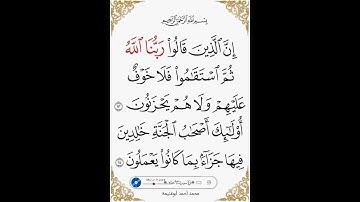 بِسْمِ اللَّهِ الرَّحْمَٰنِ الرَّحِيمِ
إِنَّ ٱلَّذِينَ قَالُوا۟ رَبُّنَا ٱللَّهُ
ثُمَّ ٱسْتَقَٰمُوا۟ فَلَا خَوْفٌ
عَلَيْهِمْ وَلَا هُمْ يَحْزَنُونَ ١٣
أُو۟لَٰٓئِكَ أَصْحَٰبُ ٱلْجَنَّةِ خَٰلِدِينَ
فِيهَا جَزَآءًۢ بِمَا كَانُوا۟ يَعْمَلُونَ ١٤
محمد أحمد أبوقليعة